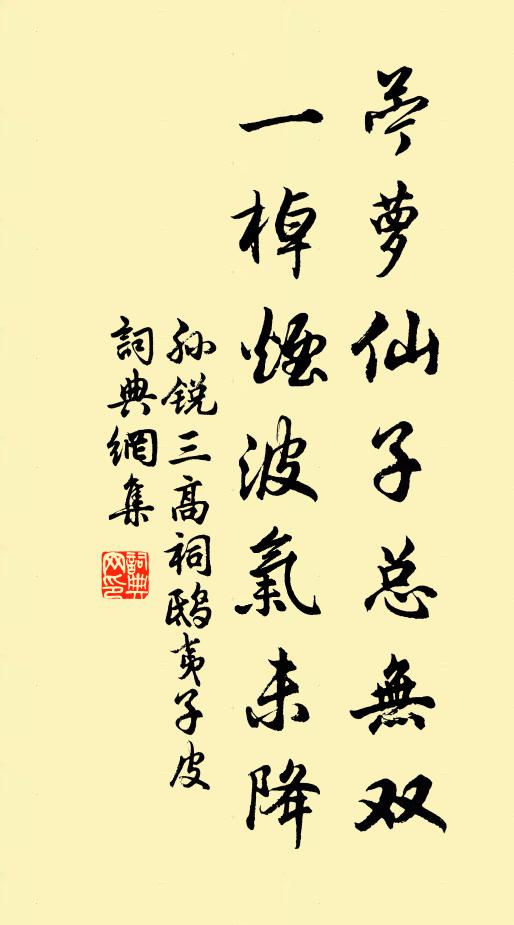 苎萝仙子总無双
一棹煙波氣未降
孙锐三高祠鸱夷子皮
詞典網集
詞典网印